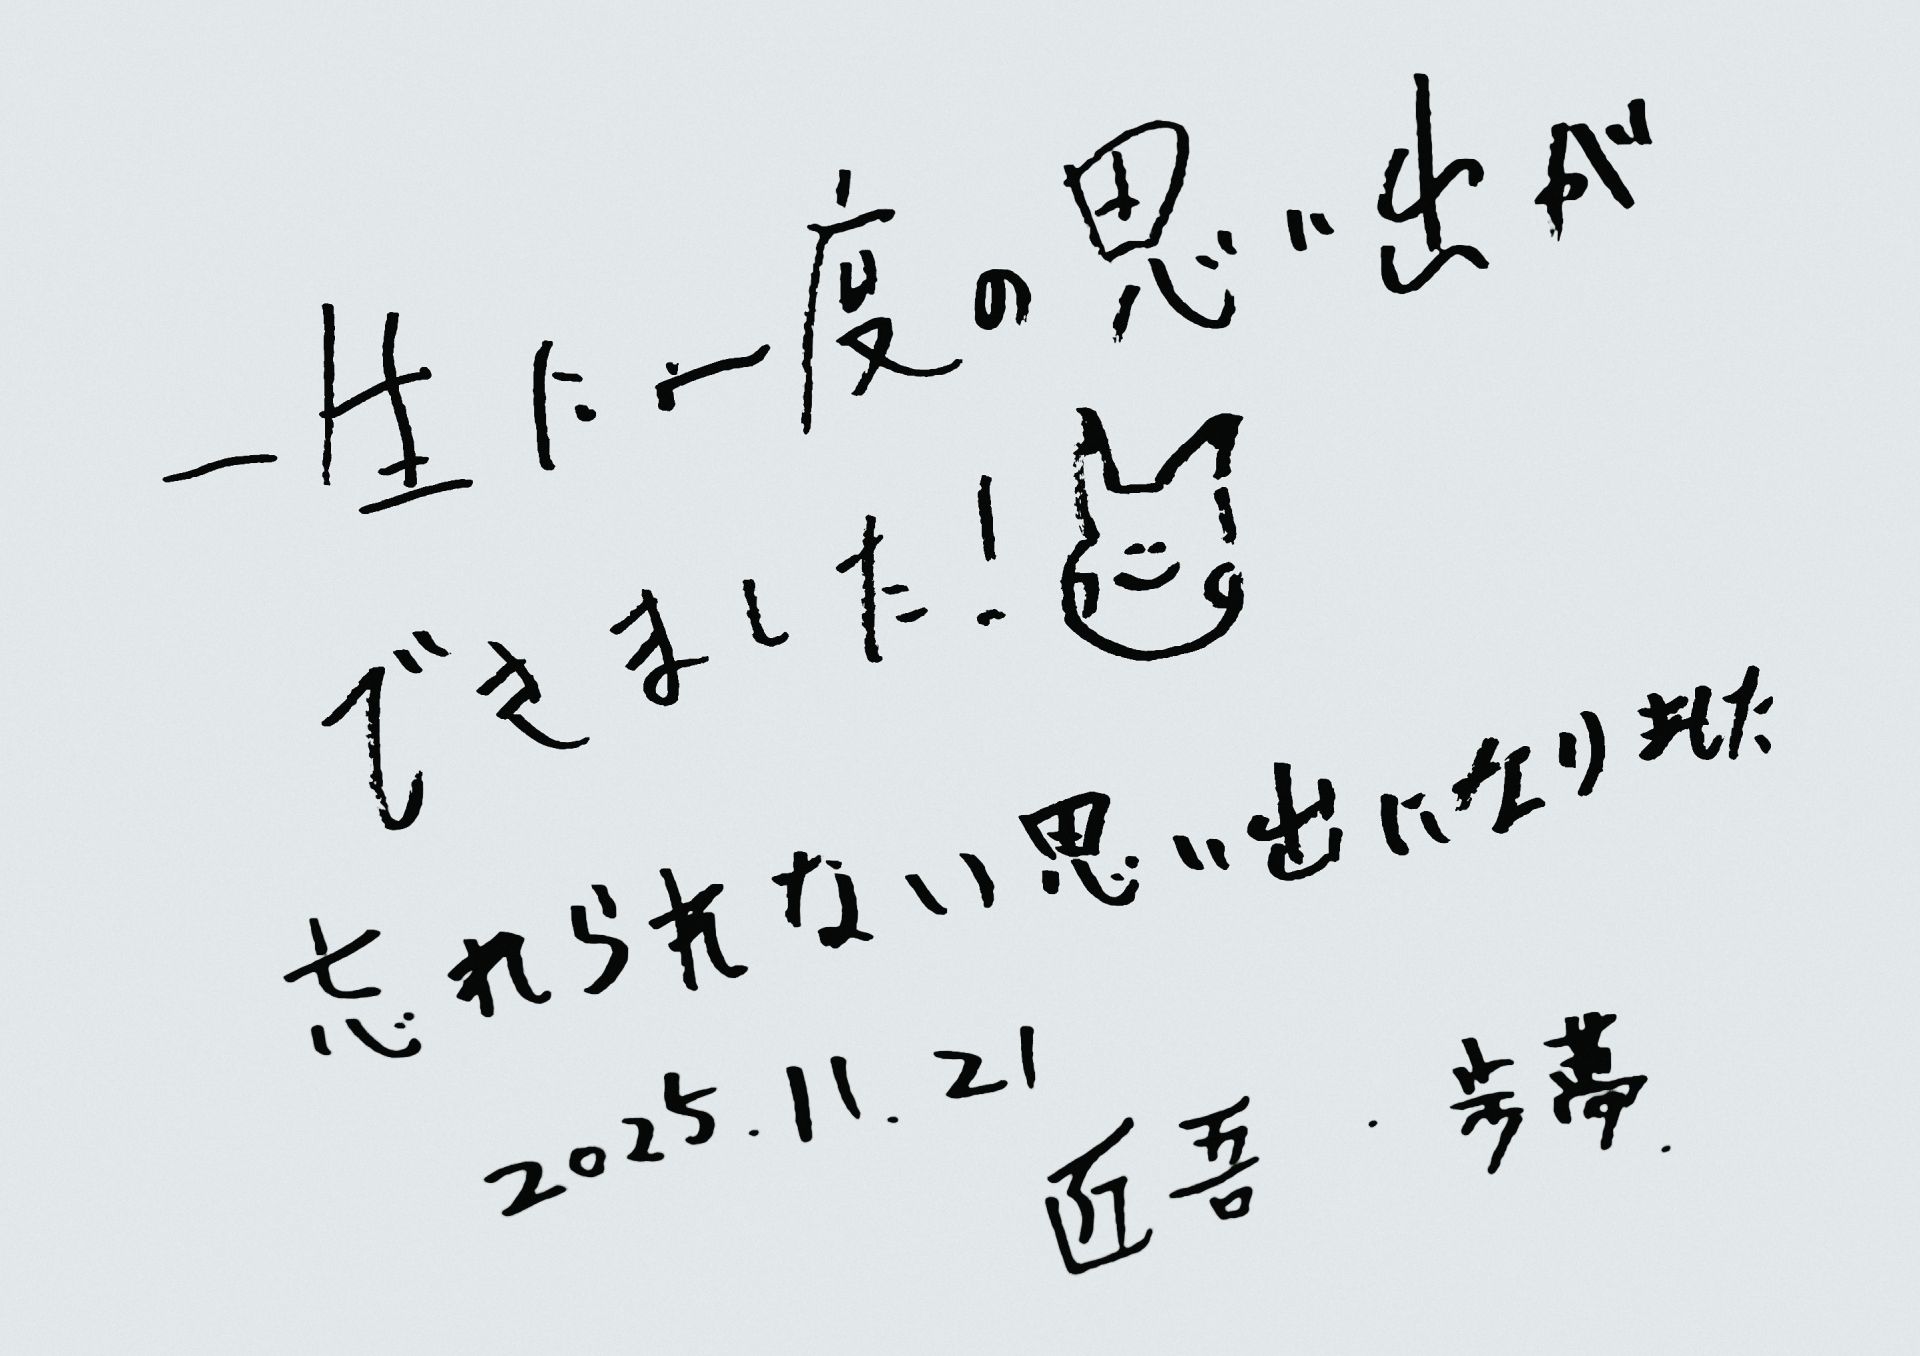 一生に一度の思い出が
できました!
忘れられない思い出になりました
2025.11.21
匠吾・歩夢.